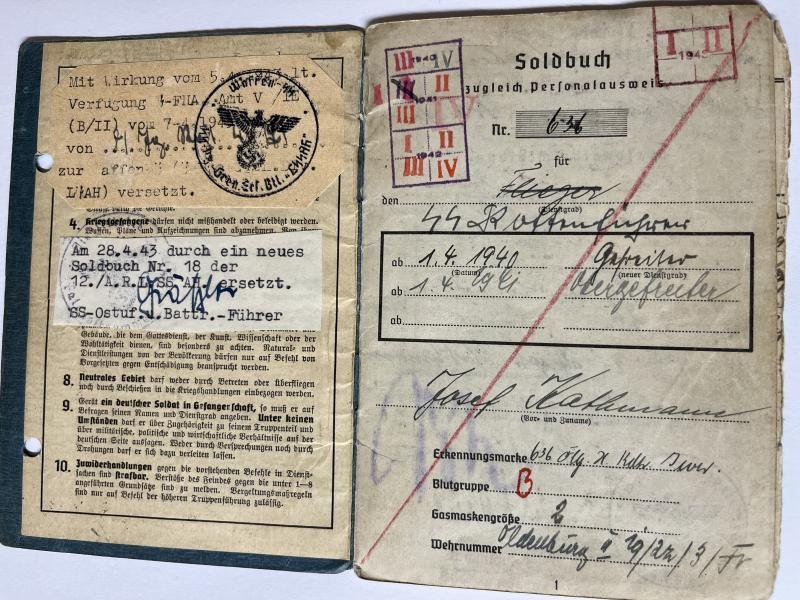 Mit Wirkung vom 5.4. lt.
Verfügung ᛋᛋ-FHA Amt V /IE
(B/II) vom 7-4
von
zur
LᛋᛋAH) versetzt.
Waffen-ᛋᛋ
4. Kriegsgefangene dürfen nicht mißhandelt oder beleidigt werden.
Waffen, Pläne und Aufzeichnungen sind abzunehmen.
Am 28.4.43 durch ein neues
Soldbuch Nr. 18 der
12./A.R.LSS AH ersetzt.
SS-Ostuf.u.Battr.-Führer
Gebäude, die dem Gottesdienst, der Kunst, Wissenschaft oder der
Wohltätigkeit dienen, sind besonders zu achten. Natural- und
Dienstleistungen von der Bevölkerung dürfen nur auf Befehl von
Vorgesetzten gegen Entschädigung beansprucht werden.
8. Neutrales Gebiet darf weder durch Betreten oder Überfliegen
noch durch Beschießen in die Kriegshandlungen einbezogen werden.
9. Gerät ein deutscher Soldat in Gefangenschaft, so muß er auf
Befragen seinen Namen und Dienstgrad angeben. Unter keinen
Umständen darf er über Zugehörigkeit zu seinem Truppenteil und
über militärische, politische und wirtschaftliche Verhältnisse auf der
deutschen Seite aussagen. Weder durch Versprechungen noch durch
Drohungen darf er sich dazu verleiten lassen.
10. Zuwiderhandlungen gegen die vorstehenden Befehle in Dienst-
sachen sind strafbar. Verstöße des Feindes gegen die unter 1—8
angeführten Grundsätze sind zu melden. Vergeltungsmaßregeln
sind nur auf Befehl der höheren Truppenführung zulässig.
III 1940 IV
I III II
1941
III IV
I II
1942
III IV
I II
1943
Soldbuch
zugleich Personalausweis
Nr. 636
für
den Flieger
(Dienstgrad)
SS Rottenführer
ab 1.4.1940 Gefreiter
(Datum) (neuer Dienstgrad)
ab 1.4.1941 Obergefreiter
ab
Josef
(Vor- und Zuname)
Erkennungsmarke 636
Blutgruppe B
Gasmaskengröße 2
Wehrnummer Oldenburg II 19/22/3/
1